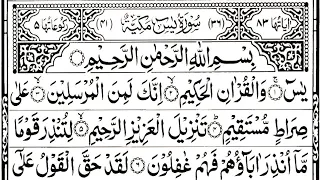 اٰیاتہا ۸۳ (۳۶) سُوْرَةُ یٰسٓ مَكِّیَّةٌ (۴۱) رکوعاتہا ۵
بِسْمِ اللّٰهِ الرَّحْمٰنِ الرَّحِیْمِ
یٰسٓ ۚ﴿۱﴾ وَالْقُرْاٰنِ الْحَكِیْمِ ۙ﴿۲﴾ اِنَّكَ لَمِنَ الْمُرْسَلِیْنَ ۙ﴿۳﴾ عَلٰی
صِرَاطٍ مُّسْتَقِیْمٍ ؕ﴿۴﴾ تَنْزِیْلَ الْعَزِیْزِ الرَّحِیْمِ ۙ﴿۵﴾ لِتُنْذِرَ قَوْمًا
مَّاۤ اُنْذِرَ اٰبَآؤُهُمْ فَهُمْ غٰفِلُوْنَ ﴿۶﴾ لَقَدْ حَقَّ الْقَوْلُ عَلٰۤی